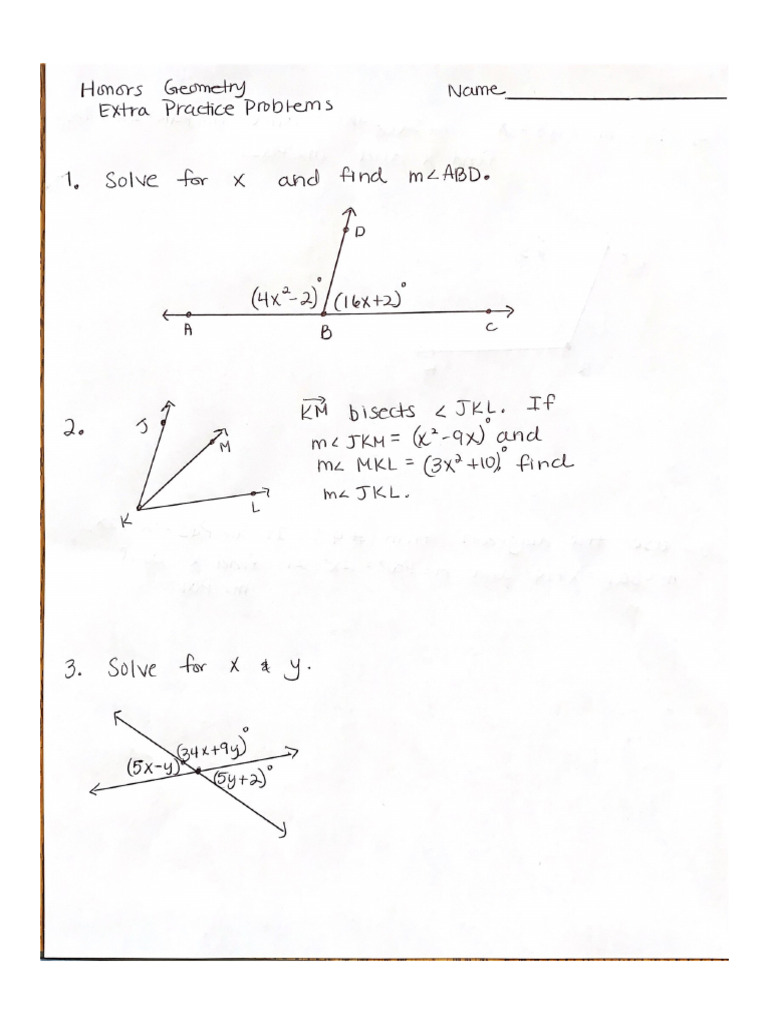 Honors Geometry
Name
Extra Practice Problems
1. Solve for x and find m∠ABD.
D
(4x²-2)° (16x+2)°
A B C
2.
J
M
K
L
KM bisects ∠ JKL. If
m∠ JKM = (x²-9x)° and
m∠ MKL = (3x²+10)°, find
m∠ JKL.
3. Solve for x & y.
(34x+9y)°
(5x-y)° (5y+2)°